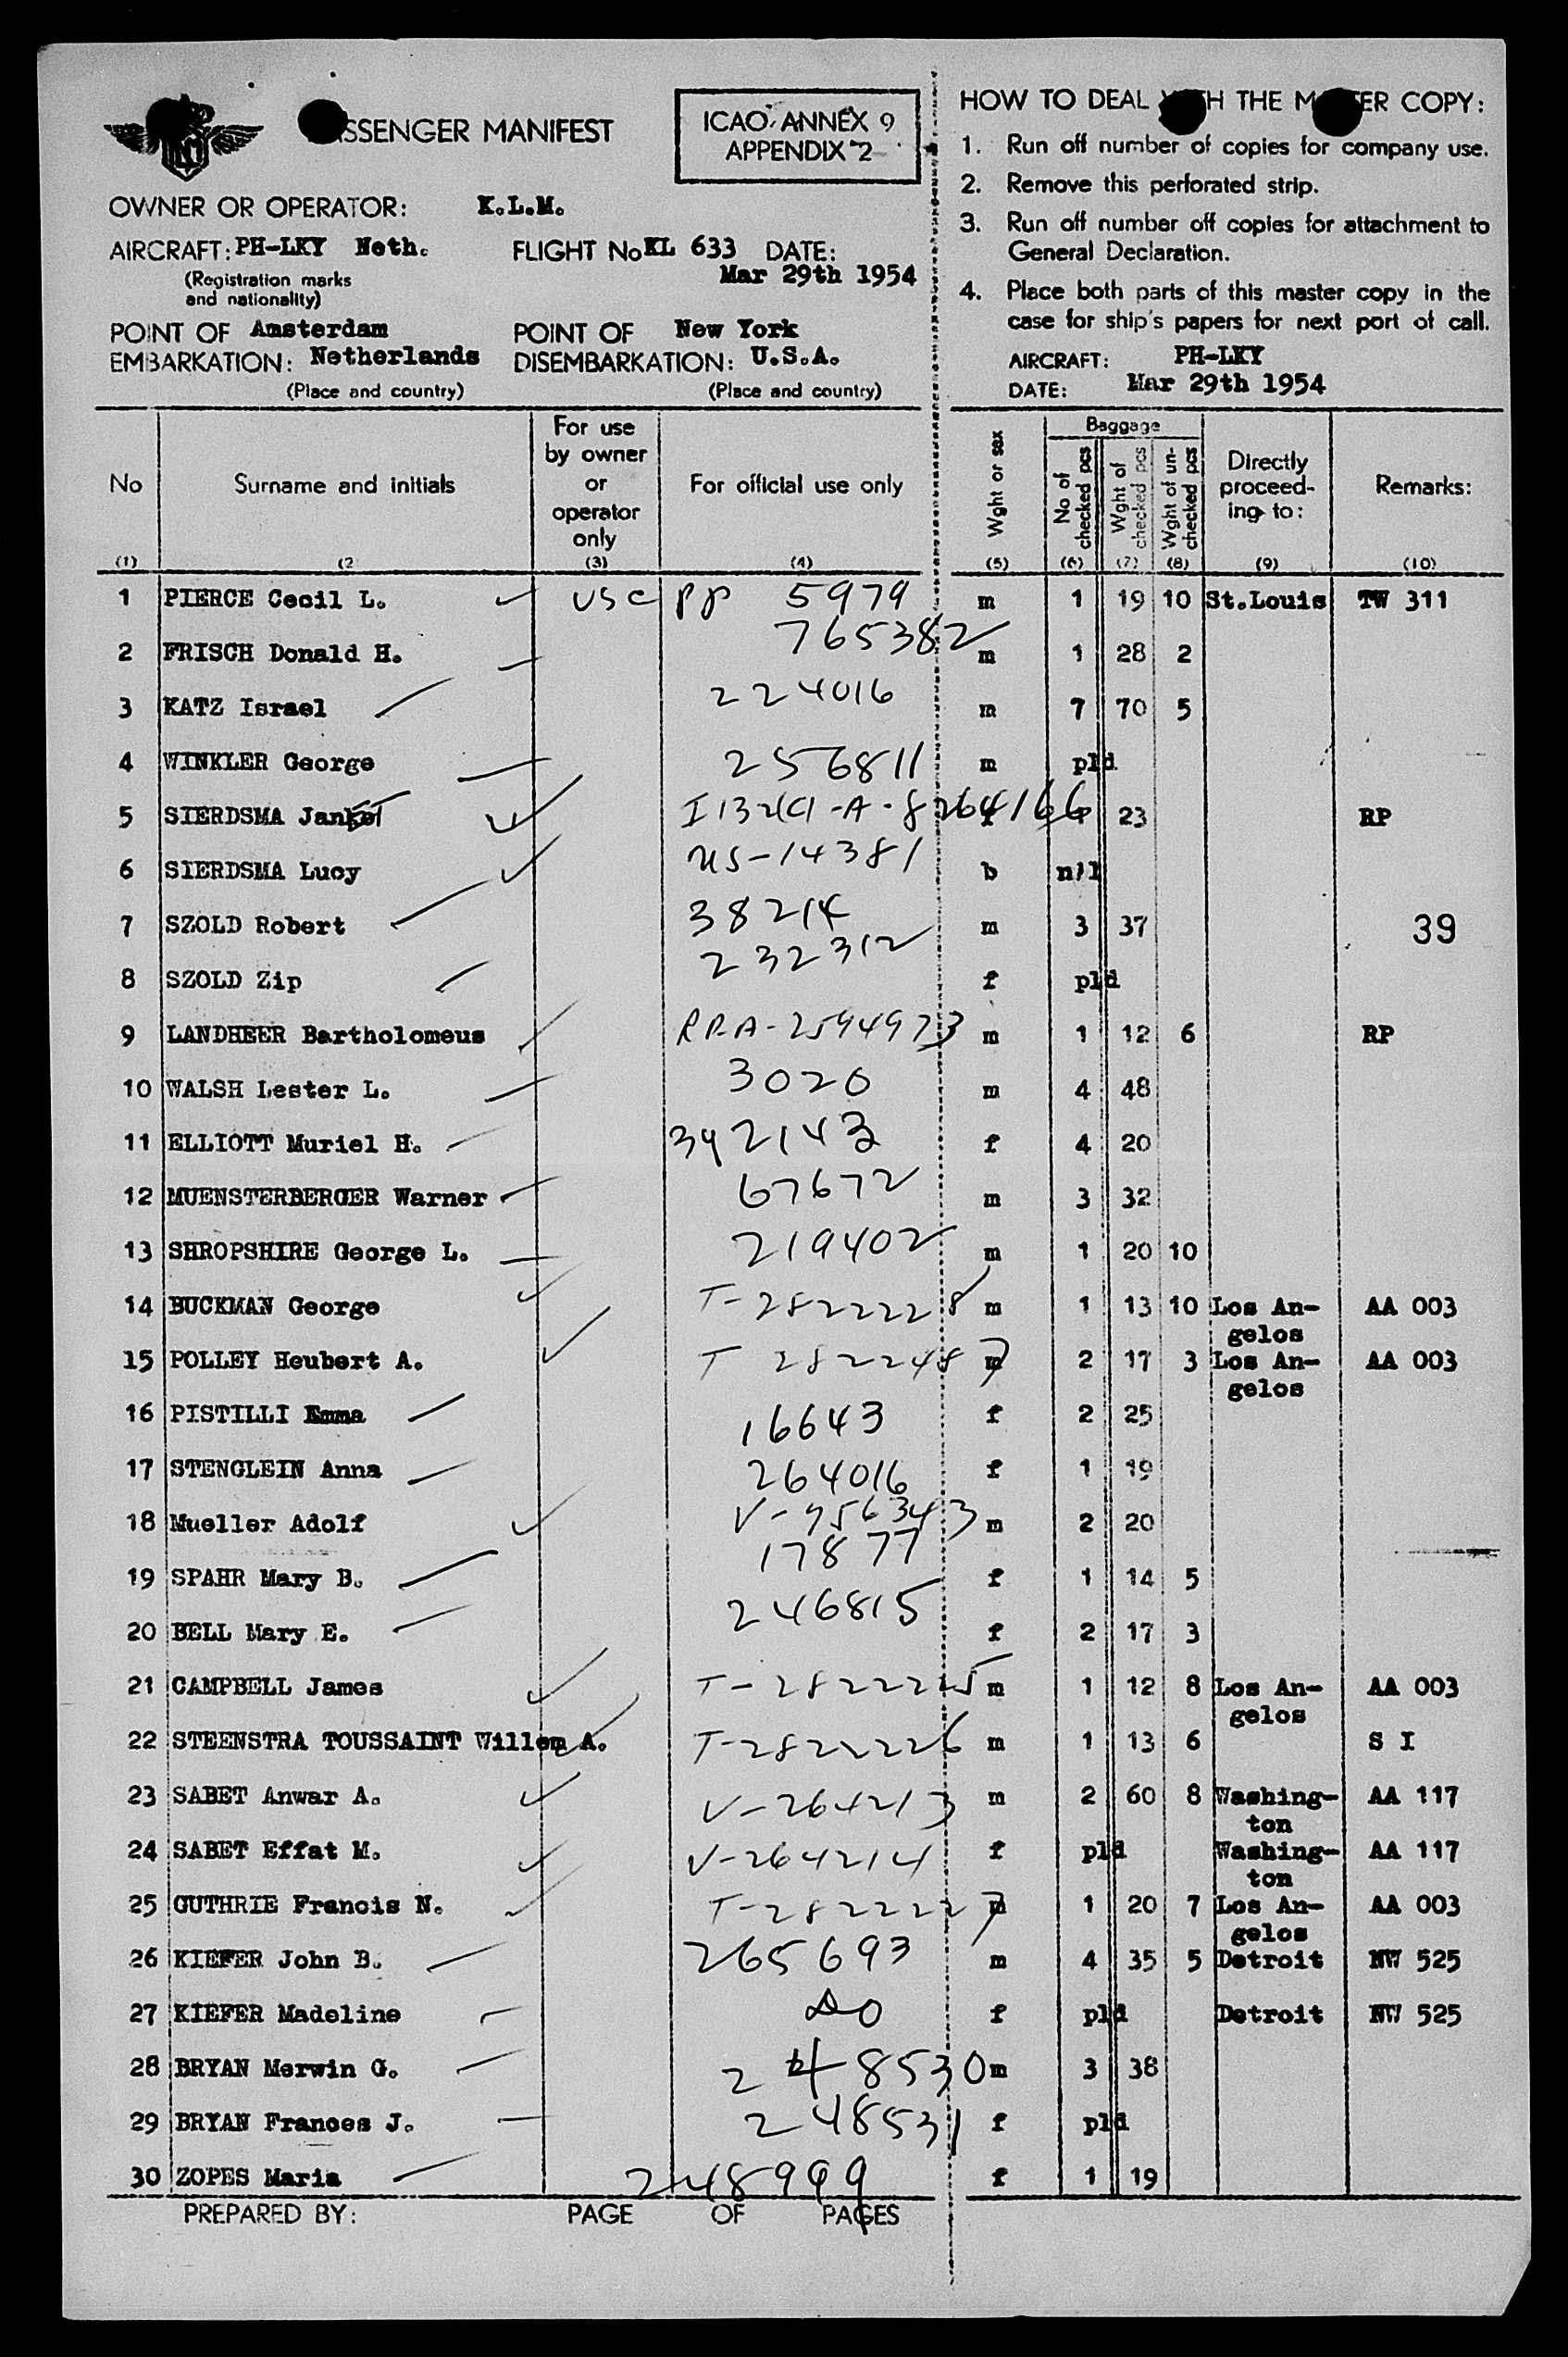 PASSENGER MANIFEST
ICAO ANNEX 9
APPENDIX 2
OWNER OR OPERATOR: K.L.M.
AIRCRAFT: PH-LKY Neth. FLIGHT No KL 633 DATE:
(Registration marks Mar 29th 1954
and nationality)
POINT OF Amsterdam POINT OF New York
EMBARKATION: Netherlands DISEMBARKATION: U.S.A.
(Place and country) (Place and country)
HOW TO DEAL WITH THE MASTER COPY:
1. Run off number of copies for company use.
2. Remove this perforated strip.
3. Run off number off copies for attachment to
General Declaration.
4. Place both parts of this master copy in the
case for ship's papers for next port of call.
AIRCRAFT: PH-LKY
DATE: Mar 29th 1954
No Surname and initials For use by owner or operator only For official use only Wght or sex Baggage No of checked pcs Wght of checked pcs Wght of un-checked pcs Directly proceed-ing to: Remarks:
(1) (2 (3) (4) (5) (6) (7) (8) (9) (10)
1 PIERCE Cecil L. USC PP 5979 m 1 19 10 St.Louis TW 311
2 FRISCH Donald H. 765382 m 1 28 2
3 KATZ Israel 224016 m 7 70 5
4 WINKLER George 256811 m pld
5 SIERDSMA 23 RP
6 SIERDSMA Lucy US-14381 b nil
7 SZOLD Robert 38214 m 3 37 39
8 SZOLD Zip 232312 f pld
9 LANDHEER Bartholomeus 2594973 m 1 12 6 RP
10 WALSH Lester L. 3020 m 4 48
11 ELLIOTT Muriel H. 392143 f 4 20
12 MUENSTERBERGER Warner 67672 m 3 32
13 SHROPSHIRE George L. 219402 m 1 20 10
14 BUCKMAN George T-2822228 m 1 13 10 Los An-
gelos AA 003
15 POLLEY Heubert A. T 2822487 m 2 17 3 Los An-
gelos AA 003
16 PISTILLI Emma 16643 f 2 25
17 STENGLEIN Anna 264016 f 1 19
18 Mueller Adolf V-956343 m 2 20
19 SPAHR Mary B. 17877 f 1 14 5
20 BELL Mary E. 246815 f 2 17 3
21 CAMPBELL James T-2822225 m 1 12 8 Los An-
gelos AA 003
22 STEENSTRA TOUSSAINT Willem A. T-2822226 m 1 13 6 S I
23 SABET Anwar A. V-264213 m 2 60 8 Washing-
ton AA 117
24 SABET Effat M. V-264214 f pld Washing-
ton AA 117
25 GUTHRIE Francis N. T-2822227 m 1 20 7 Los An-
gelos AA 003
26 KIEFER John B. 265693 m 4 35 5 Detroit NW 525
27 KIEFER Madeline DO f pld Detroit NW 525
28 BRYAN Merwin G. 248530 m 3 38
29 BRYAN Frances J. 248531 f pld
30 ZOPES Maria 248999 f 1 19
PREPARED BY: PAGE OF PAGES